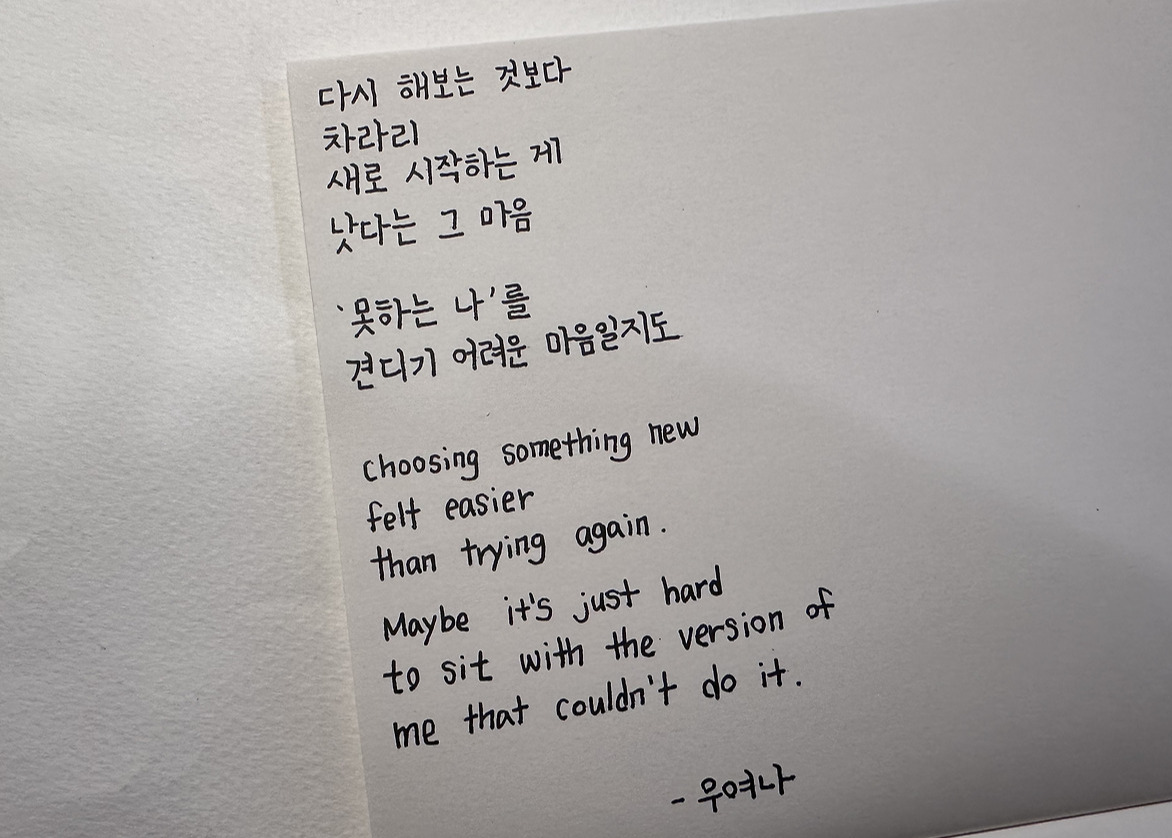 다시 해보는 것보다
차라리
새로 시작하는 게
낫다는 그 마음
'못하는 나'를
견디기 어려운 마음일지도
choosing something new
felt easier
than trying again.
Maybe it's just hard
to sit with the version of
me that couldn't do it.
- 우여나